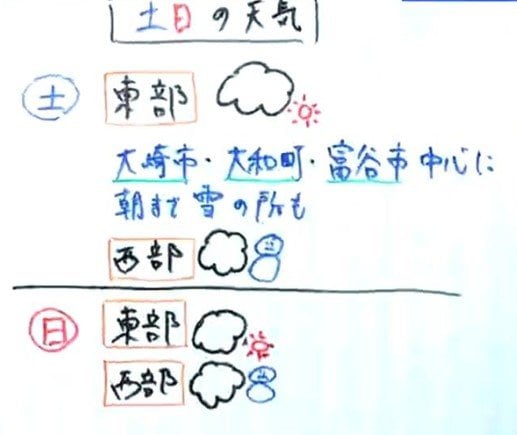 土日の天気
土 東部
大崎市・大和町・富谷市中心に
朝まで雪の所も
西部
日 東部
西部